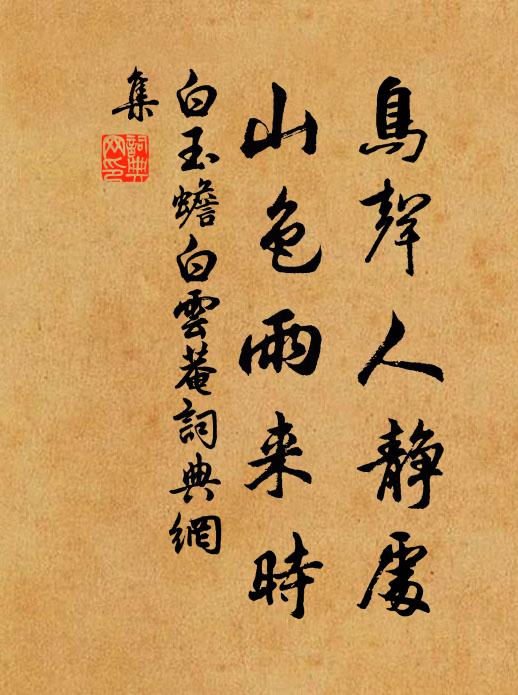 鳥聲人靜處
山色雨来時
白玉蟾白雲菴詞典網
集
詞典網印